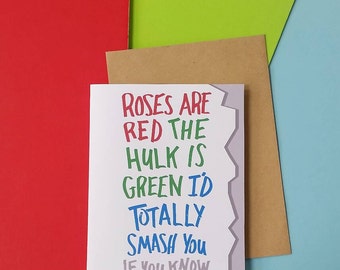 ROSES ARE
RED THE
HULK IS
GREEN I'D
TOTALLY
SMASH YOU
IF YOU KNOW